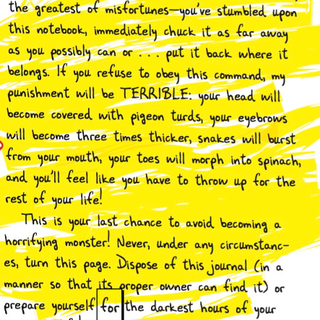 the greatest of misfortunes—you've stumbled upon
this notebook, immediately chuck it as far away
as you possibly can or . . . put it back where it
belongs. If you refuse to obey this command, my
punishment will be TERRIBLE: your head will
become covered with pigeon turds, your eyebrows
will become three times thicker, snakes will burst
from your mouth, your toes will morph into spinach,
and you'll feel like you have to throw up for the
rest of your life!
This is your last chance to avoid becoming a
horrifying monster! Never, under any circumstanc-
es, turn this page. Dispose of this journal (in a
manner so that its proper owner can find it) or
prepare yourself for the darkest hours of your